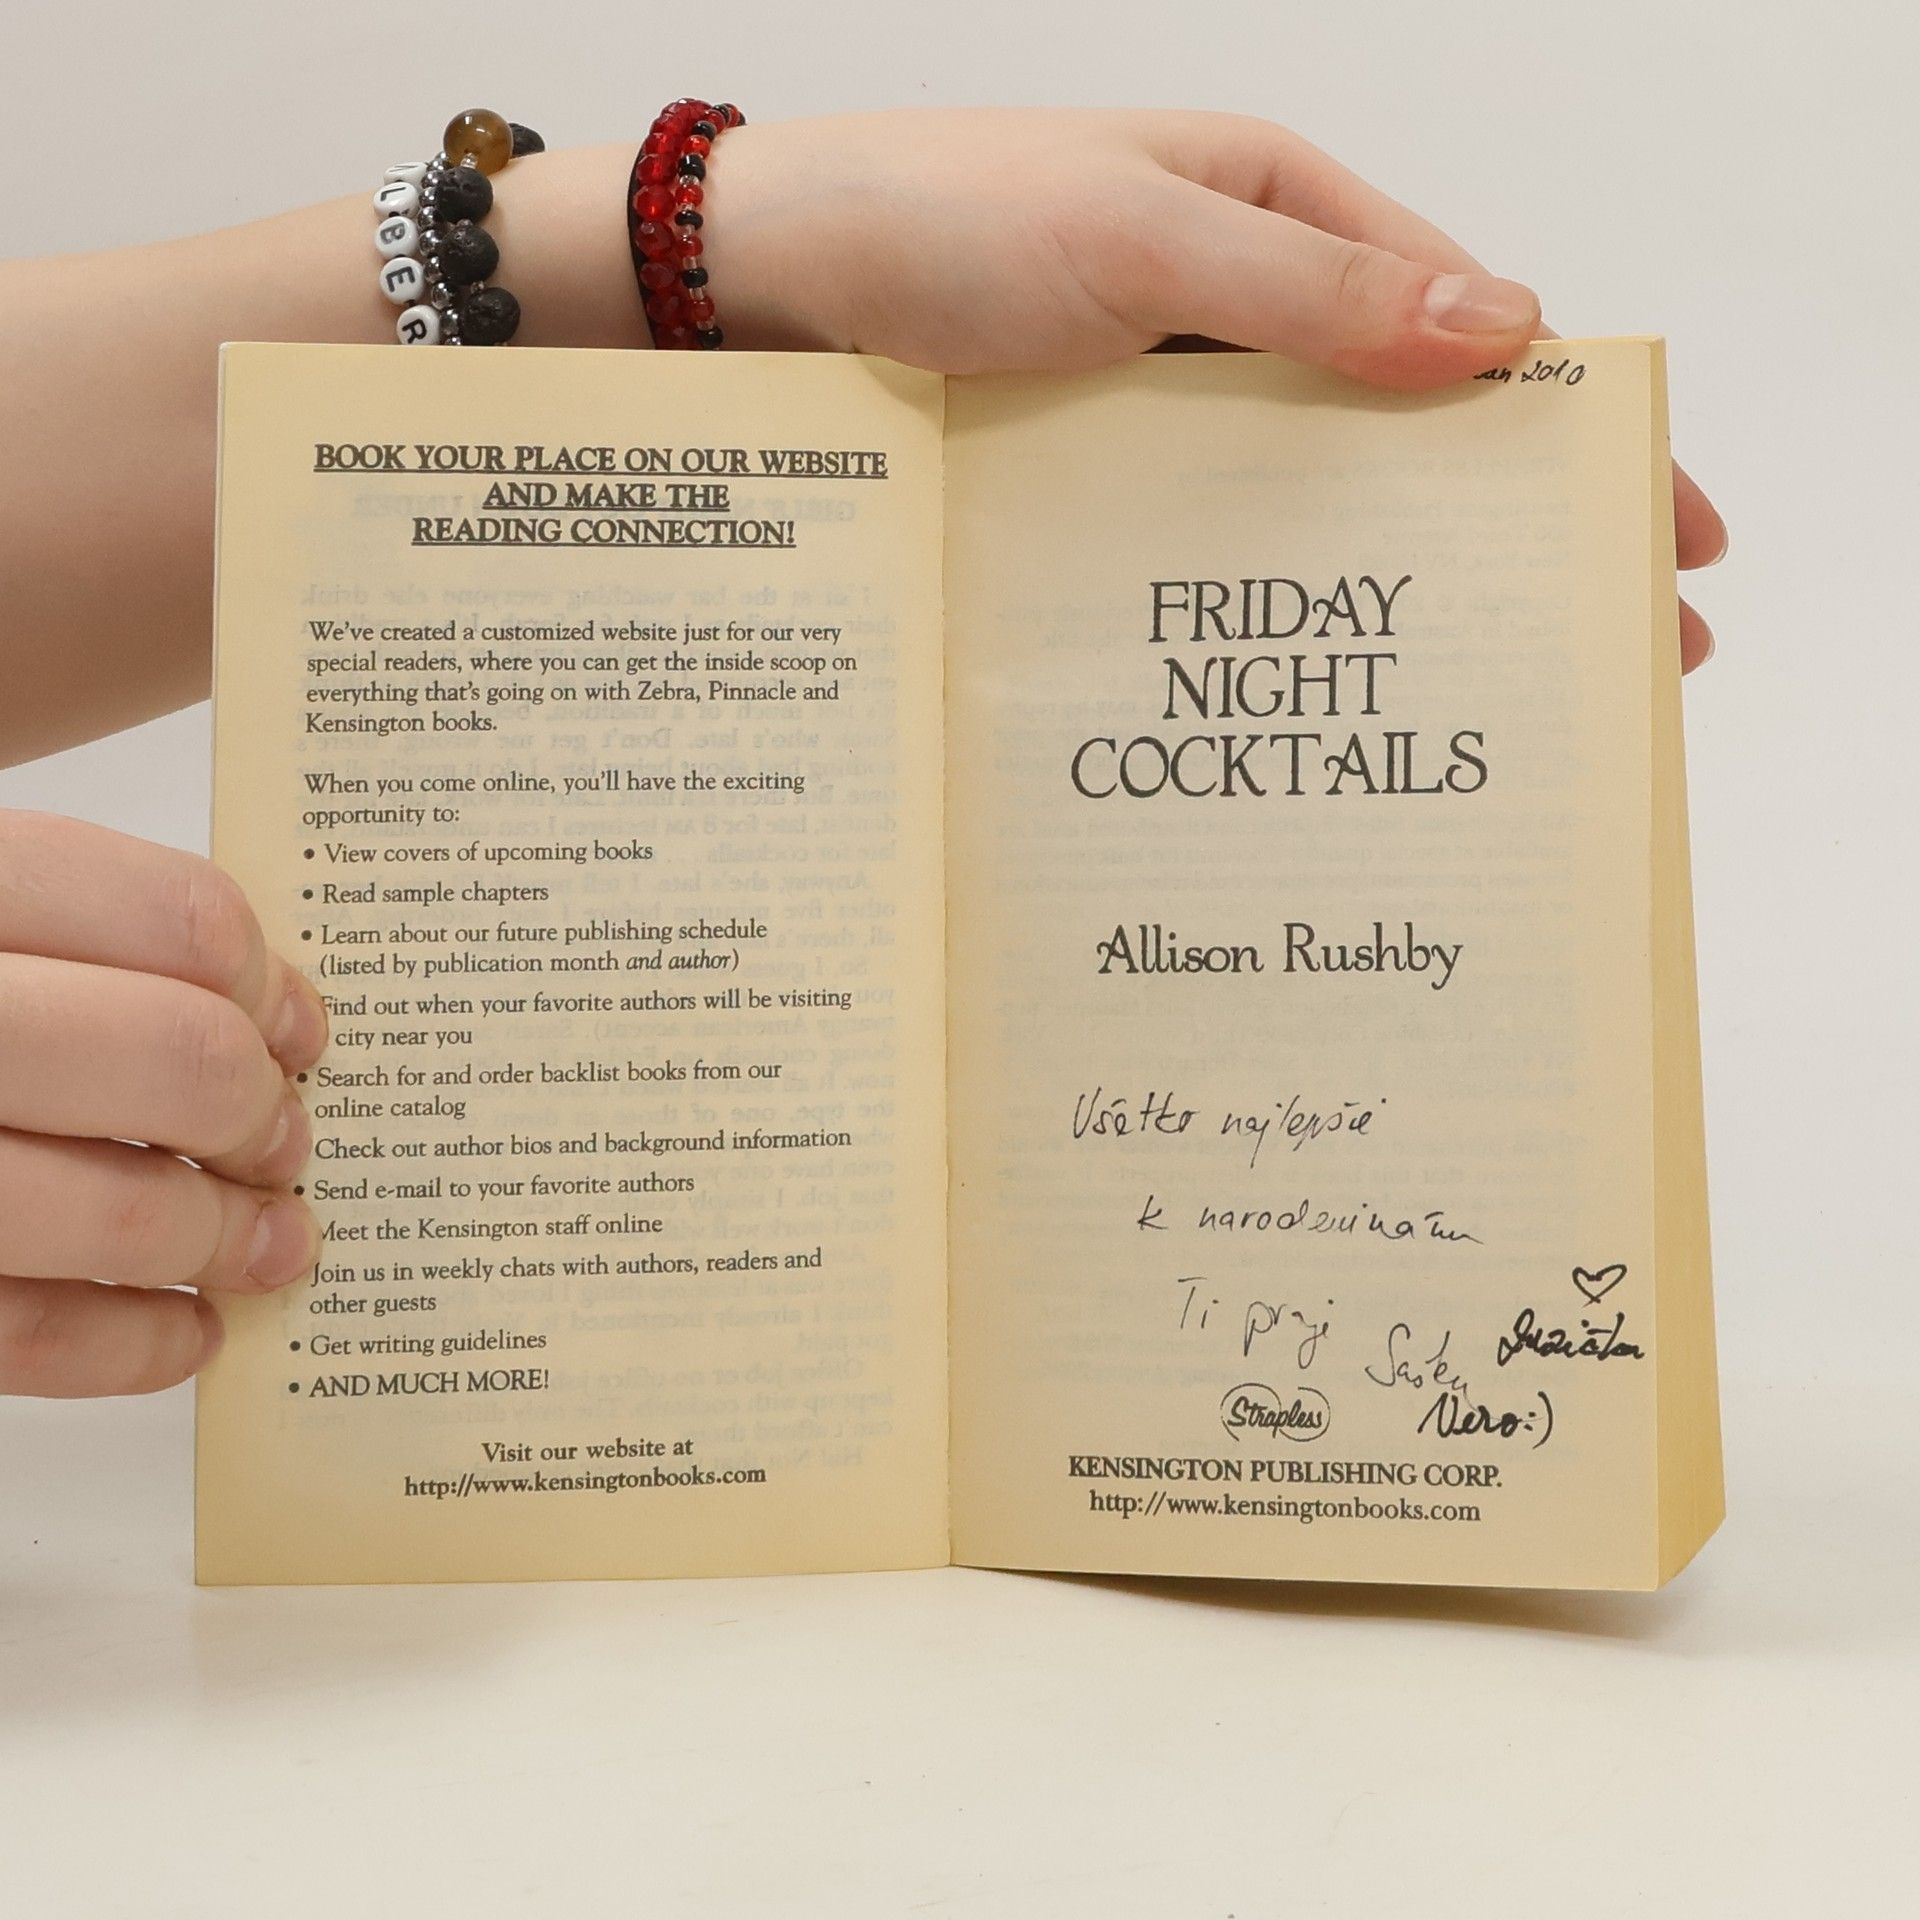 L
B
E
R
BOOK YOUR PLACE ON OUR WEBSITE
AND MAKE THE
READING CONNECTION!
We've created a customized website just for our very
special readers, where you can get the inside scoop on
everything that's going on with Zebra, Pinnacle and
Kensington books.
When you come online, you'll have the exciting
opportunity to:
• View covers of upcoming books
• Read sample chapters
• Learn about our future publishing schedule
(listed by publication month and author)
Find out when your favorite authors will be visiting
city near you
• Search for and order backlist books from our
online catalog
Check out author bios and background information
• Send e-mail to your favorite authors
Meet the Kensington staff online
Join us in weekly chats with authors, readers and
other guests
• Get writing guidelines
• AND MUCH MORE!
Visit our website at
http://www.kensingtonbooks.com
2010
FRIDAY
NIGHT
COCKTAILS
Allison Rushby
Všetko najlepšie
k narodeninám
Ti praje
Strapless
Vero:)
KENSINGTON PUBLISHING CORP.
http://www.kensingtonbooks.com